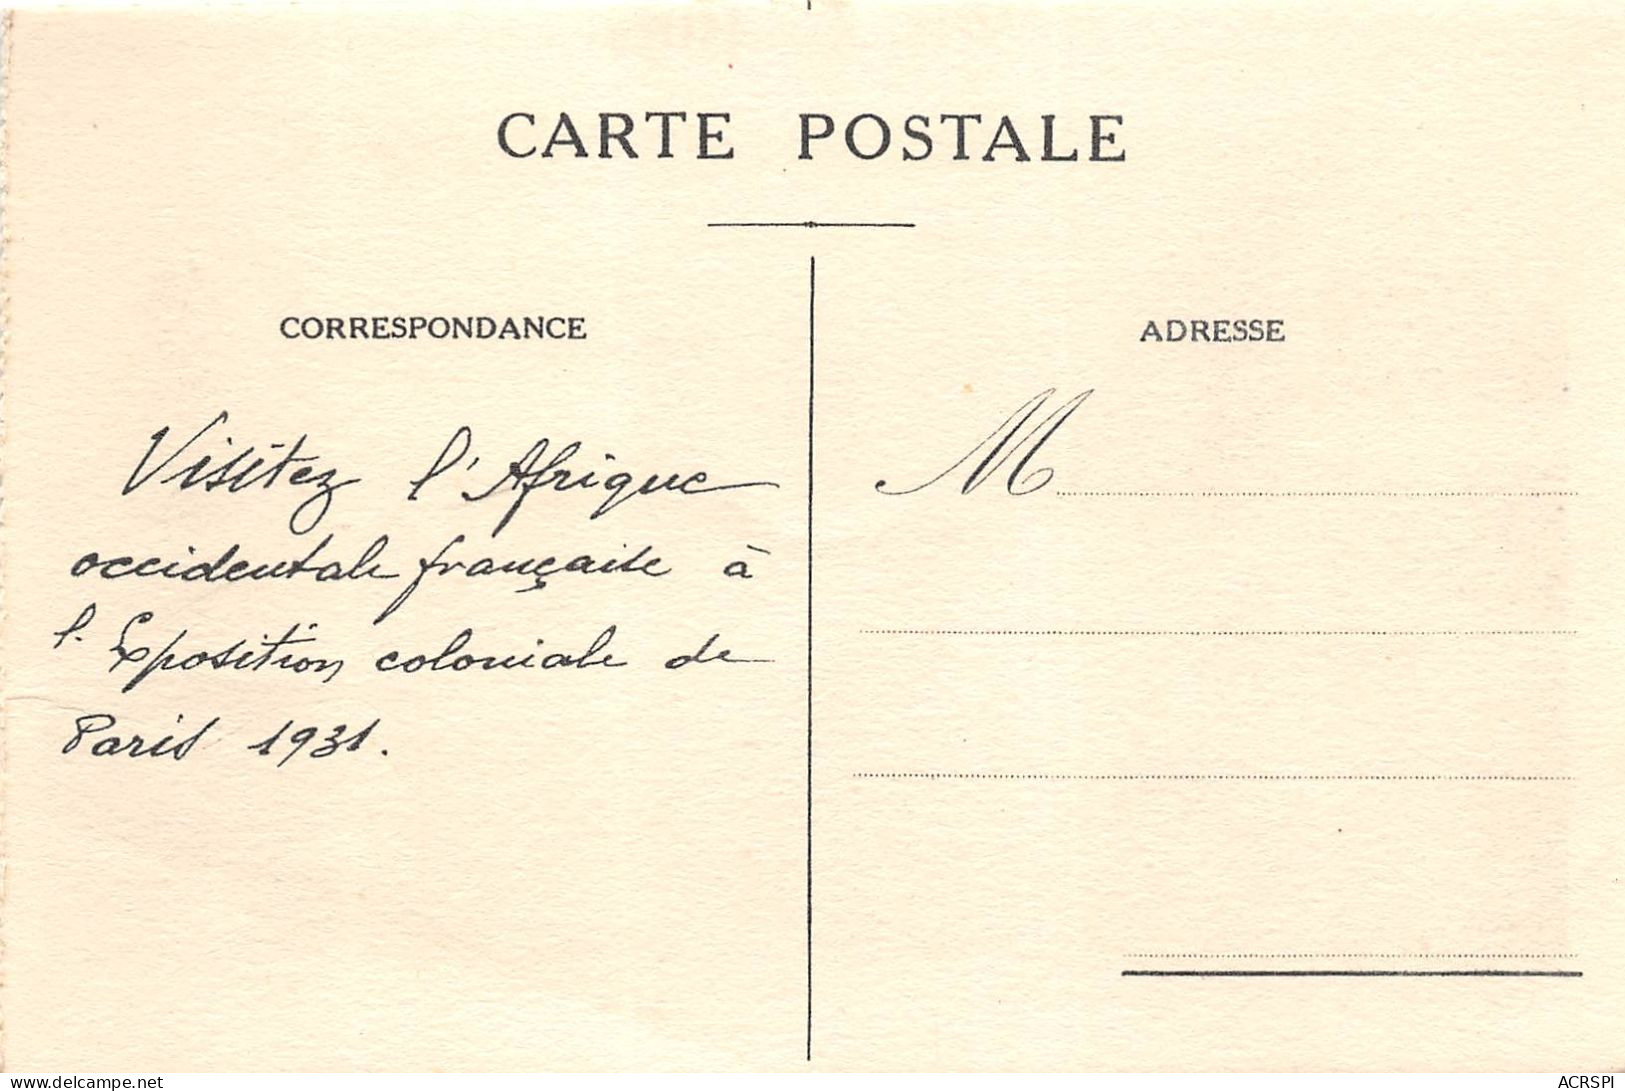 CARTE POSTALE
CORRESPONDANCE
Visitez l'Afrique
occidentale française à
l'Exposition coloniale de
Paris 1931.
ADRESSE
M
www.delcampe.net
ACRSPI